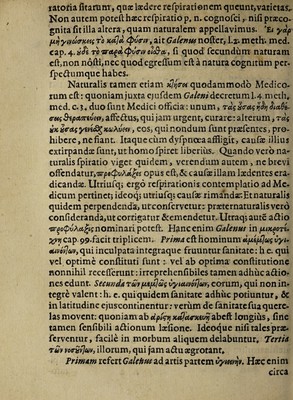 ratoria sitarum, quæ lædere respirationem queunt, varietas.
Non autem potest hæc respiratio p. n. cognosci, nisi præcognita
sit illa altera, quam naturalem appellavimus. Εἰ γὰρ
μὴ γιγνώσκεις τὸ κατὰ φύσιν, ait Galenus noster, l. 2. meth. med.
cap. 4. οὐδὲ τὸ παρὰ φύσιν εἴσῃ, si quod secundum naturam
est, non nôsti, nec quod egressum est à natura cognitum perspectumque
habes.
Naturalis tamen etiam quodammodo Medicorum
est: quoniam juxta ejusdem Galeni decretum l. 4. meth.
med. c. 3. duo sunt Medici officia: unum, τὰς
affectus, qui jam urgent, curare: alterum, τὰς
κωλύειν, eos, qui nondum sunt præsentes, prohibere,
ne fiant. Itaque cum dyspnœa affligit, causæ illius
extirpandæ sunt, ut homo spiret liberius. Quando verò naturalis
spiratio viget quidem, verendum autem, ne brevi
offendatur, opus est, & causæ illam lædentes eradicandæ.
Utriusq; ergò respirationis contemplatio ad Medicum
pertinet; ideoq; utriusq; causæ rimandæ: Et naturalis
quidem perpendenda, ut conservetur: præternaturalis verò
consideranda, ut corrigatur & emendetur. Utraq; autē actio
nominari potest. Hanc enim Galenus in
cap. 99. facit triplicem. Prima est hominum
qui inculpata integraque fruuntur sanitate: h. e. qui
vel optimè constituti sunt: vel ab optimæ constitutione
nonnihil recesserunt: irreprehensibiles tamen adhùc actiones
edunt. Secunda τῶν eorum, qui non integrè
valent: h. e. qui quidem sanitate adhùc potiuntur, &
in latitudine ejus continentur: verùm de sanitate suæ querelas
movent: quoniam ab abest longiùs, sine
tamen sensibili actionum læsione. Ideoque nisi tales præserventur,
facilè in morbum aliquem delabuntur. Tertia
τῶν νοσούντων, illorum, qui jam actu ægrotant.
Primam refert Galenus ad artis partem Hæc enim
circa